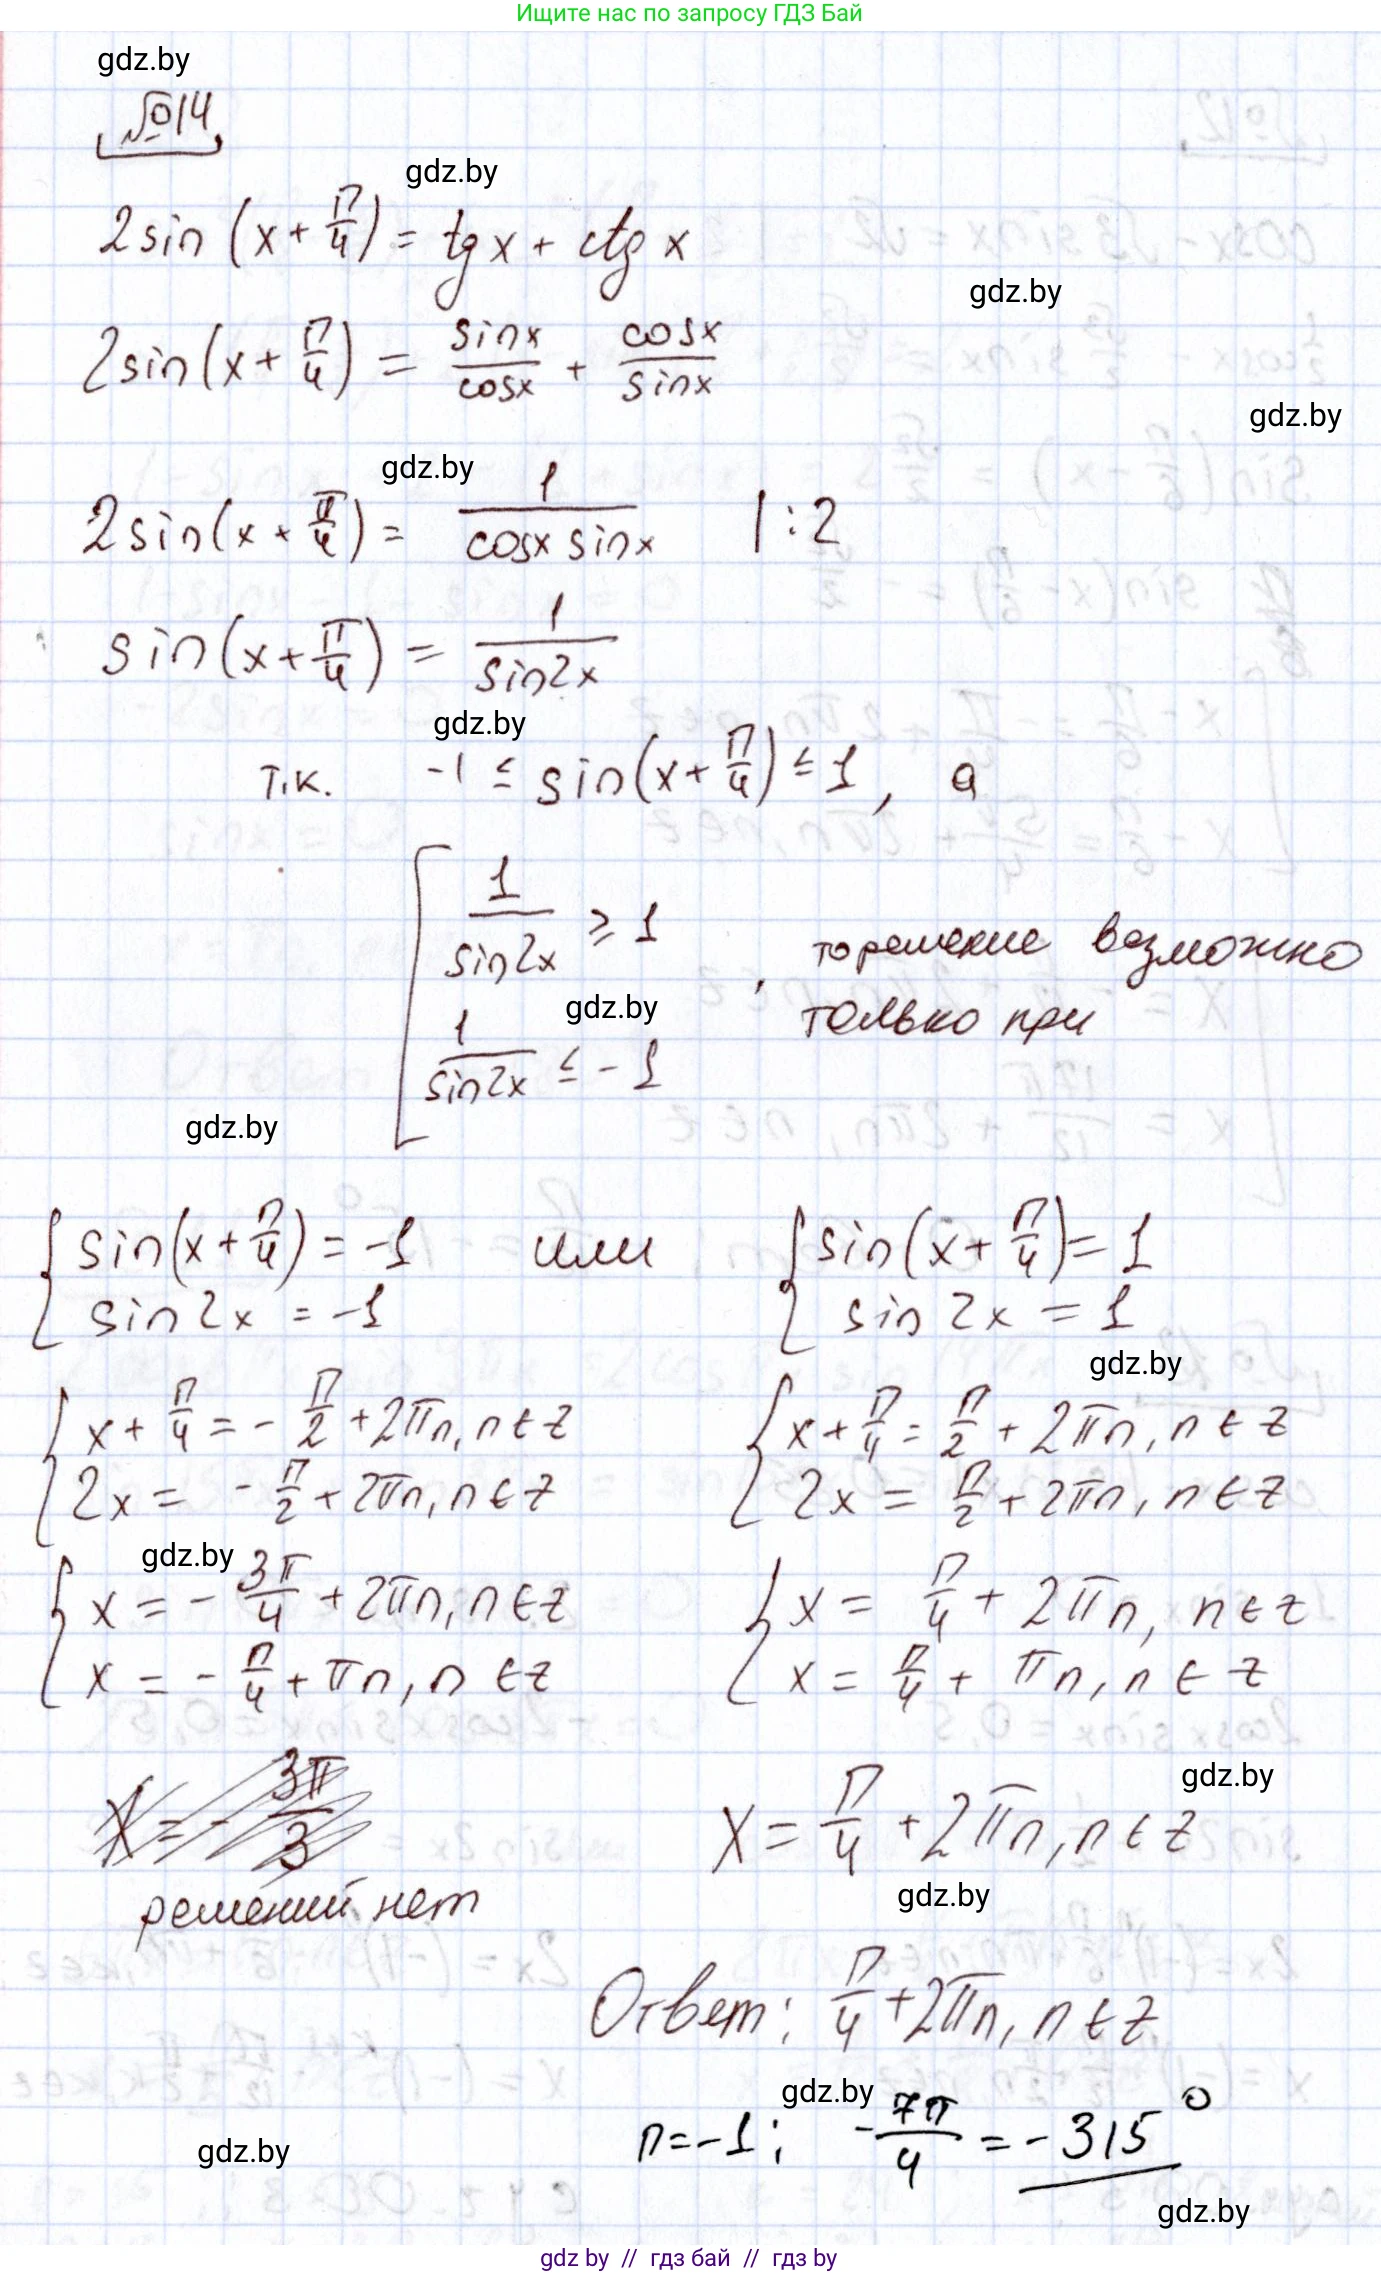 Ищите нас по запросу ГДЗ Бай
gdz.by
№14
gdz.by
2sin(x + π/4) = tg x + ctg x
gdz.by
2sin(x + π/4) = sinx/cosx + cosx/sinx
gdz.by
gdz.by
2sin(x + π/4) = 1/(cosx sinx) | :2
sin(x + π/4) = 1/sin2x
gdz.by
т.к. -1 ≤ sin(x + π/4) ≤ 1, а
[ 1/sin2x ≥ 1
то решение возможно
gdz.by
только при
1/sin2x ≤ -1
gdz.by
{ sin(x + π/4) = -1 или { sin(x + π/4) = 1
sin2x = -1 sin2x = 1
gdz.by
{ x + π/4 = -π/2 + 2πn, n ∈ z { x + π/4 = π/2 + 2πn, n ∈ z
2x = -π/2 + 2πn, n ∈ z 2x = π/2 + 2πn, n ∈ z
gdz.by
{ x = -3π/4 + 2πn, n ∈ z { x = π/4 + 2πn, n ∈ z
x = -π/4 + πn, n ∈ z x = π/4 + πn, n ∈ z
gdz.by
x = -3π/3 x = π/4 + 2πn, n ∈ z
gdz.by
решений нет
Ответ: π/4 + 2πn, n ∈ z
gdz.by
n = -1; -7π/4 = -315°
gdz.by
gdz.by
gdz by // гдз бай // гдз by